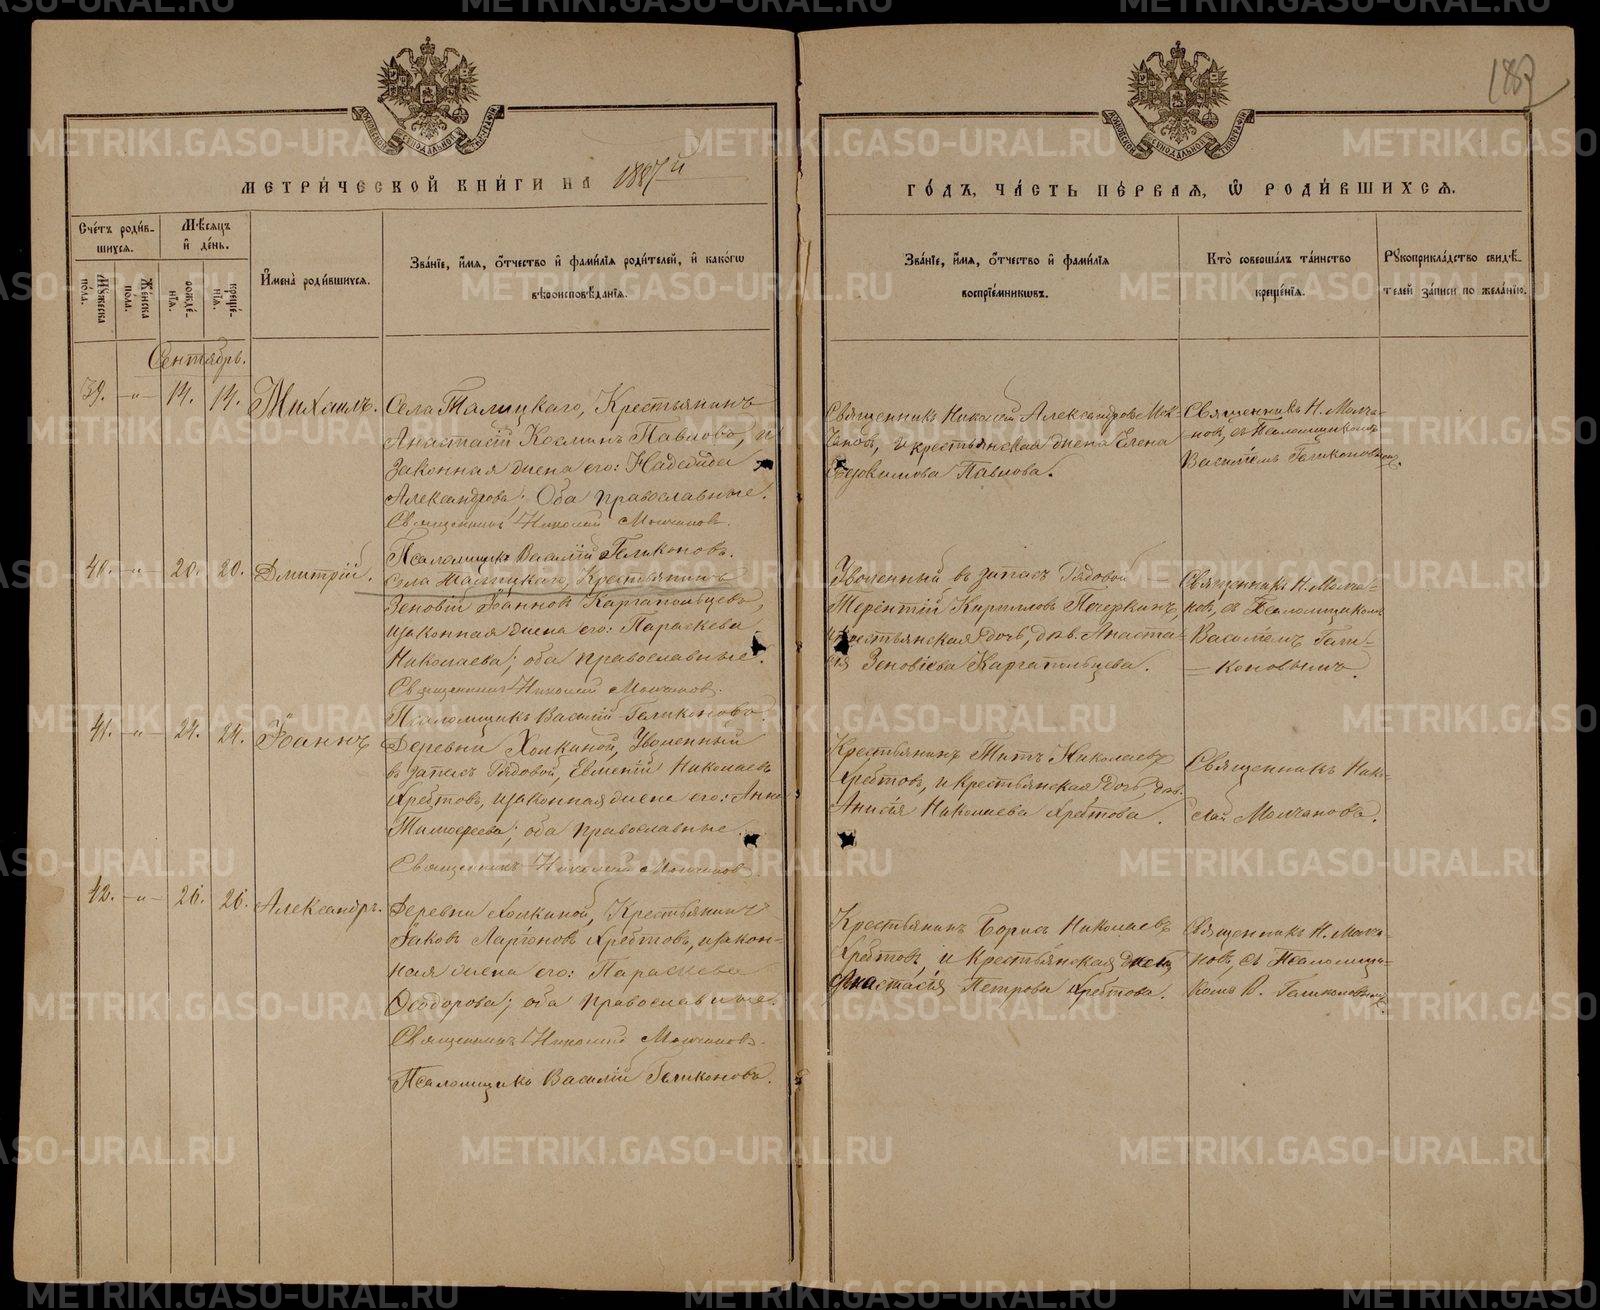 183
МЕТРИ́ЧЕСКОЙ КНИ́ГИ НА 1887й
ГО́ДЪ, ЧА́СТЬ ПЕ́РВАЯ, Ѿ РОДИ́ВШИХСЯ.
Сче́тъ роди́вшихся.
Мѣ́сяцъ и҆ де́нь.
Мꙋ́жеска по́ла.
Же́нска по́ла.
рожде́нїя.
креще́нїя.
И҆мена̀ роди́вшихся.
Зва́нїе, и҆́мя, ѻ҆́тчество и҆ фами́лїя роди́телей, и҆ како́гѡ
вѣроисповѣ́данїя.
Зва́нїе, и҆́мя, ѻ҆́тчество и҆ фами́лїя
воспрїе́мникѡвъ.
Кто̀ соверша́лъ та́инство
креще́нїя.
Рꙋкоприкла́дство свидѣ́-
телей за́писи по жела́нїю.
Сентябрь.
39. -"- 14. 14. Михаилъ.
Села Талицкаго, Крестьянинъ
Анастасій Косминъ Павловъ, и
Законная жена его: Надежда
Александрова; Оба православные.
Священникъ Николай Молчановъ.
Псаломщикъ Василій Галиконовъ.
Священникъ Николай Александровъ Мол-
чановъ, и крестьянская жена Елена
Павлова.
Священникъ Н. Молча-
новъ, съ Псаломщикомъ
Василіемъ Галиконовымъ.
40. -"- 20. 20. Дмитрій.
Села Талицкаго, Крестьянинъ
Зеновій Іоанновъ Каргапольцевъ,
и законная жена его: Параскева
Николаева; оба православные.
Священникъ Николай Молчановъ.
Псаломщикъ Василій Галиконовъ.
Уволенный въ запасъ Рядовой
Терентій Кирилловъ Печеркинъ,
и крестьянская дочь, дѣв. Анаста-
сія Зеновіева Каргапольцева.
Священникъ Н. Молча-
новъ, съ Псаломщикомъ
Василіемъ Гали-
коновымъ.
41. -"- 24. 24. Іоаннъ
Деревни Холкиной, Уволенный
въ запасъ Рядовой, Евменій Николаевъ
Хребтовъ, и законная жена его: Анна
Тимофеева; оба православные.
Священникъ Николай Молчановъ.
Крестьянинъ Титъ Николаевъ
Хребтовъ, и крестьянская дочь, дѣв.
Анисія Николаева Хребтова.
Священникъ Нико-
лай Молчановъ.
42. -"- 26. 26. Александръ.
Деревни Холкиной, Крестьянинъ
Іаковъ Ларіоновъ Хребтовъ, и закон-
ная жена его: Параскева
Ѳедорова; оба православные.
Священникъ Николай Молчановъ.
Псаломщикъ Василій Галиконовъ.
Крестьянинъ Борисъ Николаевъ
Хребтовъ, и Крестьянская жена
Анастасія Петрова Хребтова.
Священникъ Н. Молча-
новъ, съ Псаломщи-
комъ В. Галиконовымъ.
METRIKI.GASO-URAL.RU